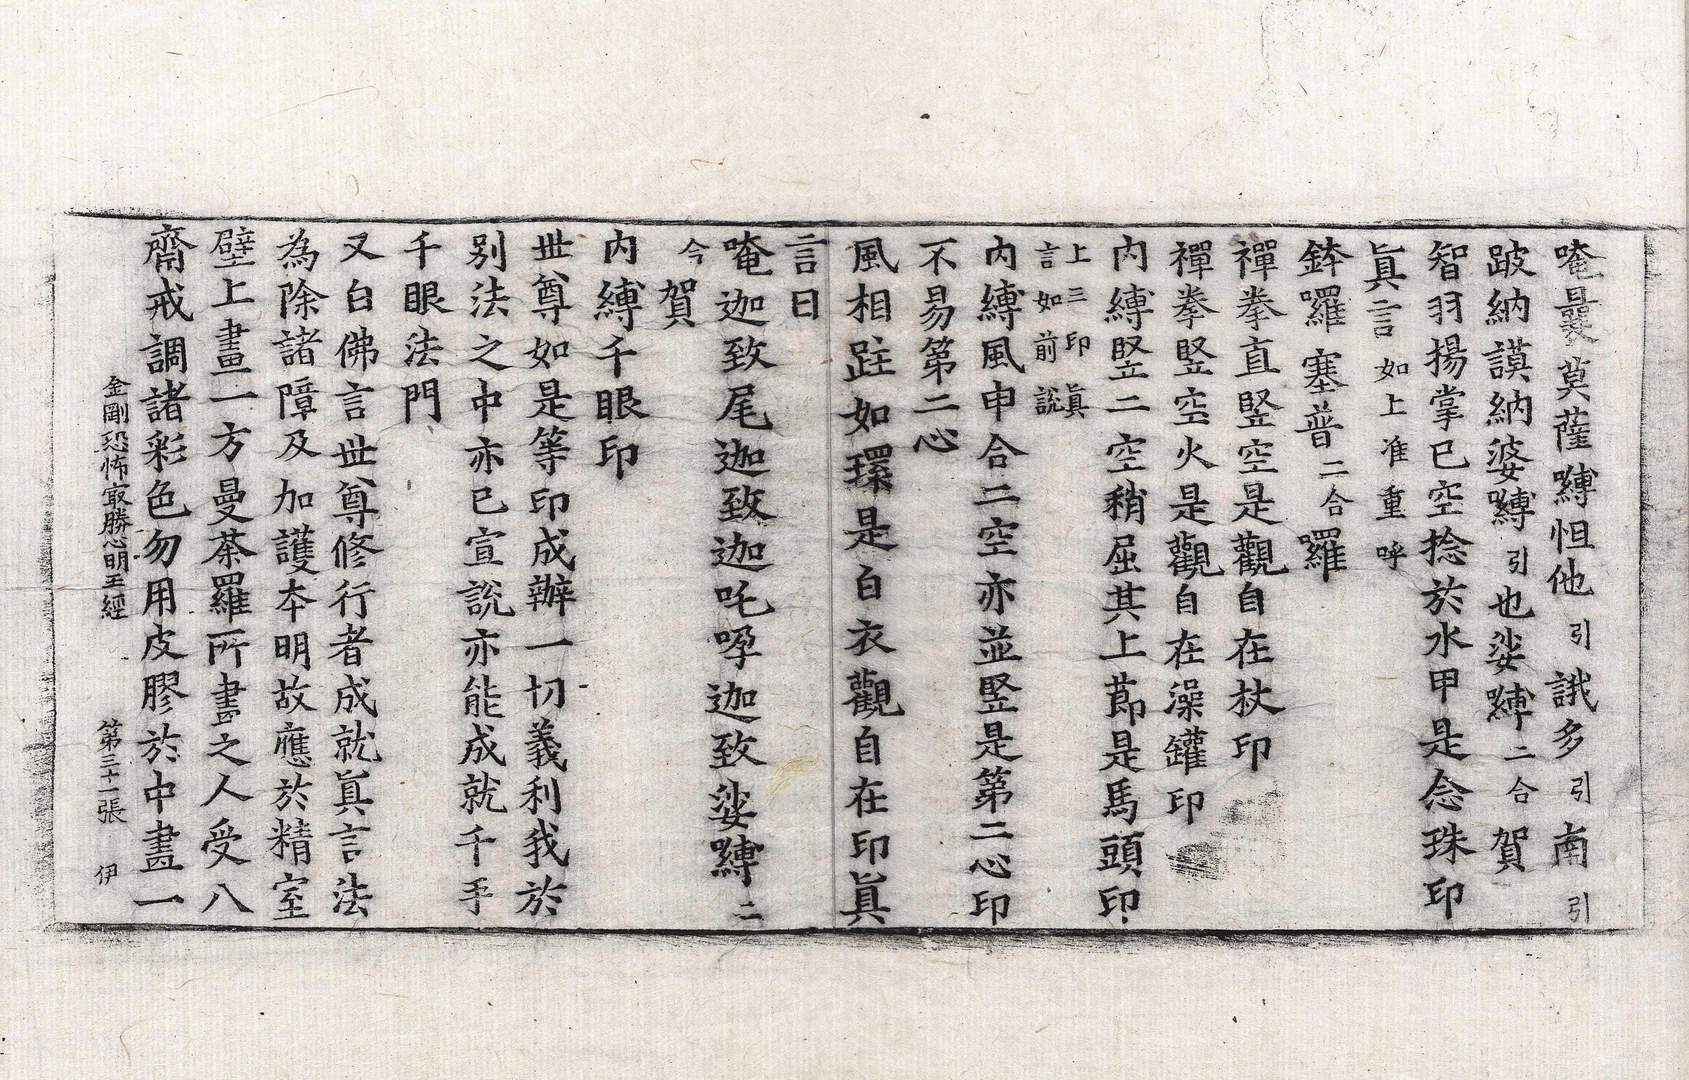 唵曩莫薩嚩怛他引誐多引南引
跛納謨納婆嚩引也娑嚩二合賀
智羽揚掌已空捻於水甲是念珠印
眞言如上准重呼
鉢囉塞普二合羅
禪拳直竪空是觀自在杖印
禪拳竪空火是觀自在澡罐印
内縛竪二空稍屈其上莭是馬頭印
上三印眞
言如前說
内縛風申合二空亦並竪是第二心印
不易第二心
風相跓如環是白衣觀自在印眞
言曰
唵迦致尾迦致致迦吒㖼迦致娑嚩二
合賀
内縛千眼印
世尊如是等印成辦一切義利我於
別法之中亦已宣說亦能成就千手
千眼法門
又白佛言世尊修行者成就眞言法
為除諸障及加護本明故應於精室
壁上畫一方曼荼羅所畫之人受八
齋戒調諸彩色勿用皮膠於中畫一
金剛恐怖㝡勝心明王經 第三十一張 伊